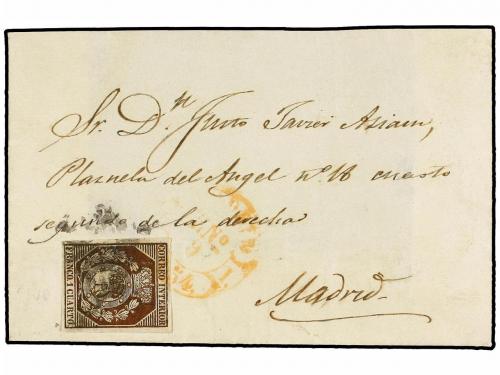 Sr. Dn. Justo Javier Asiain,
Plazuela del Angel nº 18 cuarto
segundo de la derecha
Madrid
CORREO INTERIOR
FRANCO 1 CUARTO